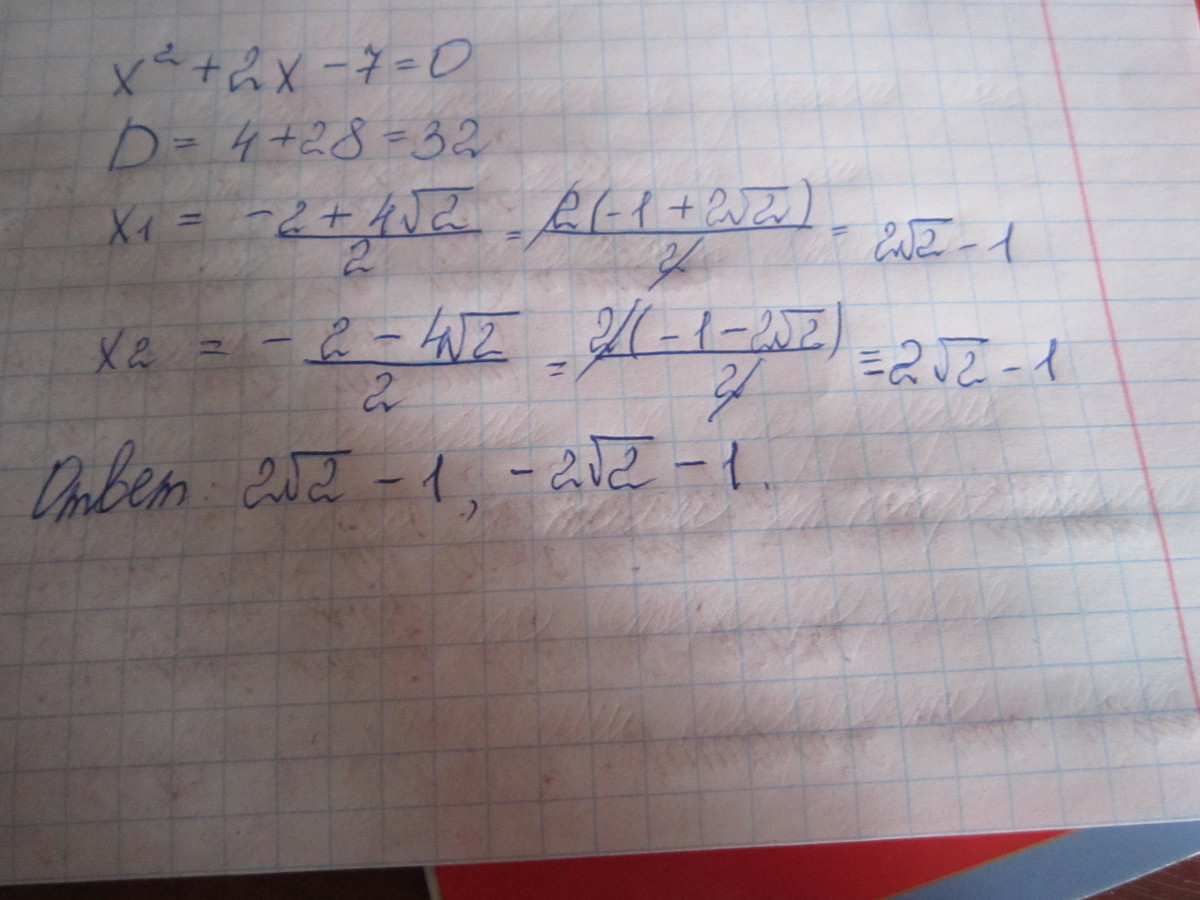 x² + 2x - 7 = 0
D = 4 + 28 = 32
x1 = (-2 + 4√2)/2 = 2(-1 + 2√2)/2 = 2√2 - 1
x2 = -(2 - 4√2)/2 = 2(-1 - 2√2)/2 = -2√2 - 1
Ответ: 2√2 - 1, -2√2 - 1.